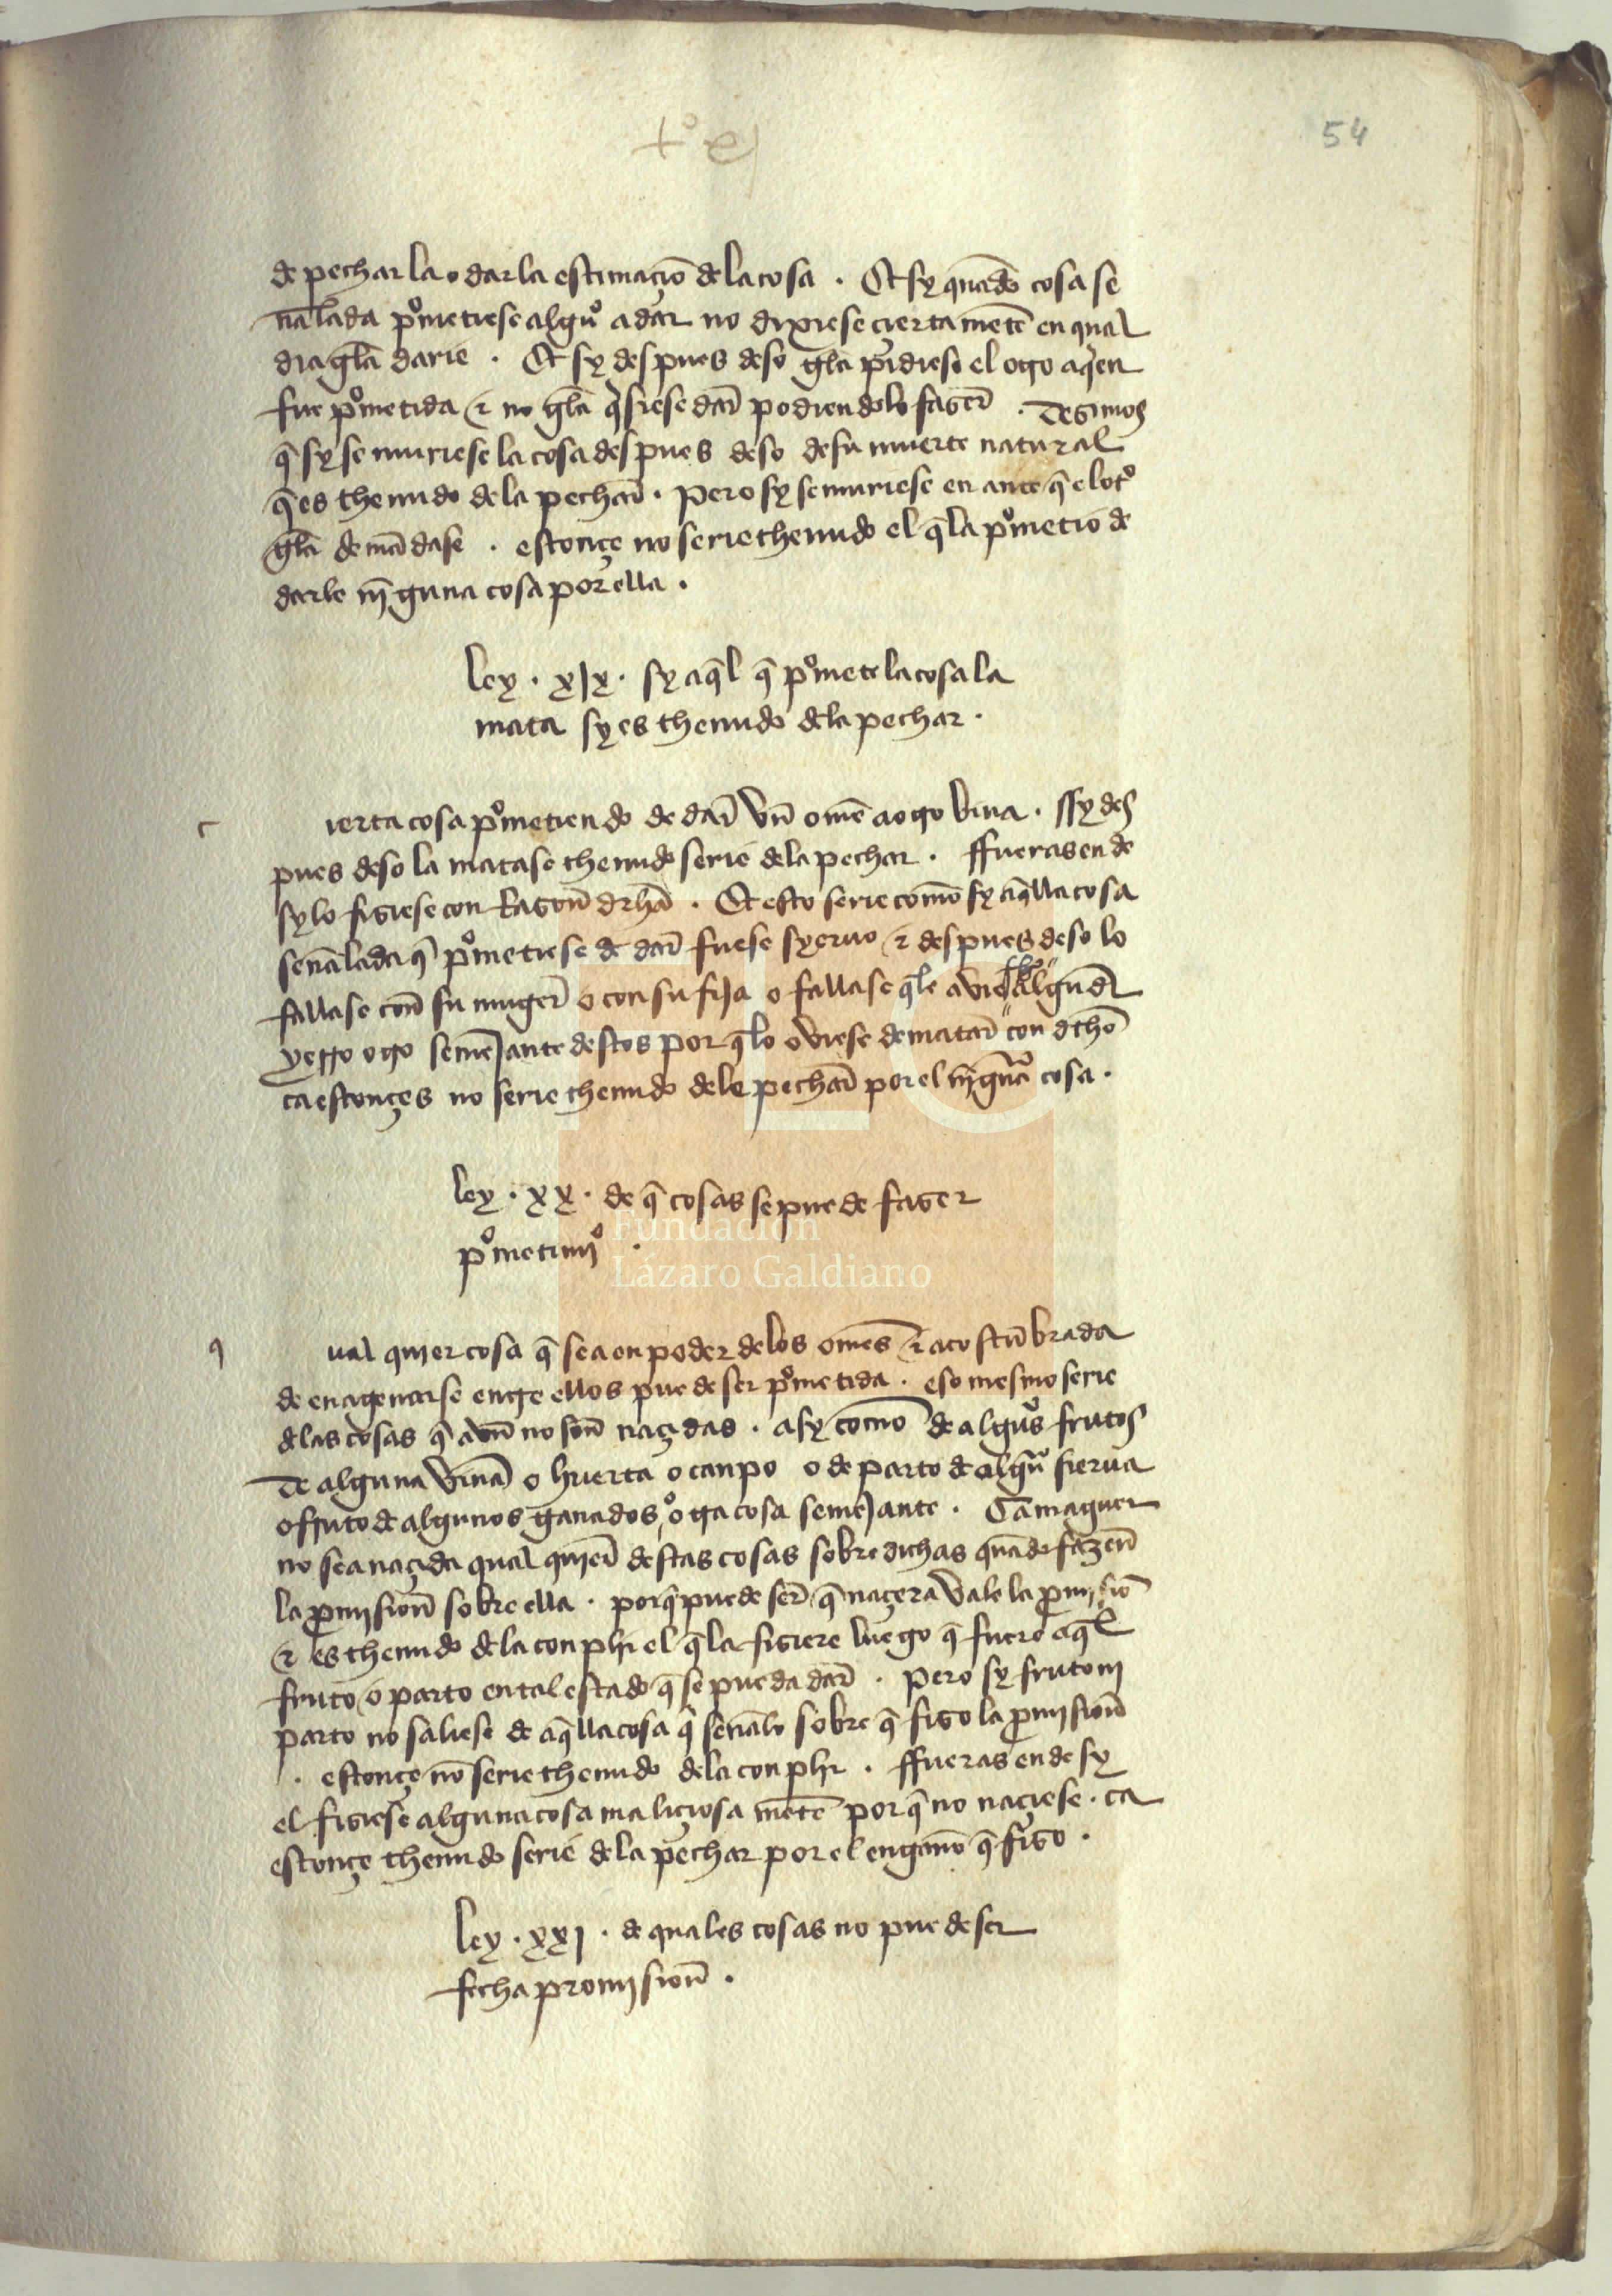 tº xj
54
de pechar la o dar la estimaçiõ de la cosa . Et sy quãdo cosa se
nãlada pºmetiese algũº a dar no dixiese çierta mẽte en qual
dia gela darie . Et sy despues deso gela pidiese el otro a qen
fue pºmetida & no gela qsiese dar̃ podiendo lo faser̃ . Desimos
q̃ sy se muriese la cosa despues deso de su muerte natural
q̃ es thenudo de la pechar̃ . Pero sy se muriese en ante q̃ el otrº
gela demãdase . estonçe no serie thenudo el q̃ la pºmetio de
darle nĩguna cosa por ella .
Ley . xjx . sy aq̃l q̃ pºmete la cosa la
mata sy es thenudo dela pechar .
c ierta cosa pºmetiendo de dar̃ vñ omẽ a otro biua . Sy des
pues deso la matase thenudo serie dela pechar . ffueras ende
sy lo fisiese con Rasoñ drhã . Et esto serie comõ sy aq̃lla cosa
señalada q̃ pºmetiese de dar̃ fuese syeruo & despues deso lo
fallase coñ su muger̃ o con su fija o fallase q̃le avie fho algũd
yerro otro semejante destos por q̃ lo oviese de matar̃ con dchõ
ca estonçes no serie thenudo dele pechar̃ por el nĩgũa cosa .
Ley . xx . de q̃ cosas se puede faser
pºmetimjº .
q ual quier cosa q̃ sea en poder de los omẽs & acostũbrada
de enagenarse entre ellos puede ser pºmetida . eso mesmo serie
de las cosas q̃ avñ no soñ naçidas . asy comõ de algũºs frutos
de alguna viñã o huerta o canpo o de parto de algũª sierua
o fruto de algunos ganados, o otra cosa semejante . Ca maguer
no sea naçida qual quier̃ destas cosas sobre dichas quãdo fazeñ
la promjsioñ sobre ella . por q̃ puede ser̃ q̃ naçera vale la promjsiõ
& es thenudo dela conplir el q̃ la fisiere luego q̃ fuere aq̃l
fruto o parto en tal estado q̃ se pueda dar̃ . Pero sy fruto nj
parto no saliese de aq̃lla cosa q̃ señalo sobre q̃ fiso la promjsioñ
. estonçe nõ serie thenudo dela conplir . ffueras ende sy
el fisiese alguna cosa maliçiosa mẽte por q̃ no naçiese . ca
estonçe thenudo serie dela pechar por el engaño q̃ fiso .
Ley . xxj . de quales cosas no puede ser
fecha promjsioñ .
Fundación
Lázaro Galdiano